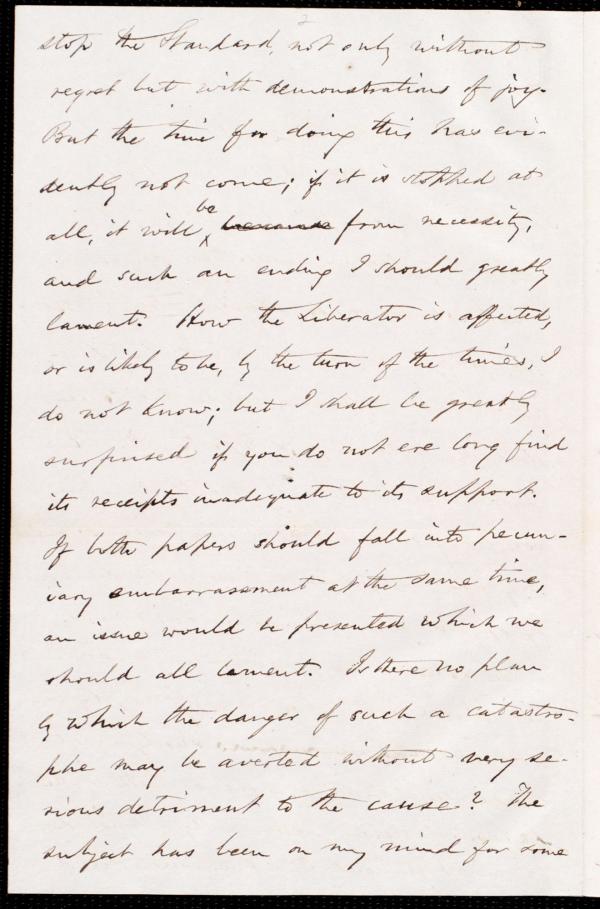 stop the Standard, not only without
regret but with demonstrations of joy.
But the time for doing this has evi-
dently not come; if it is stopped at
all, it will be because from necessity,
and such an ending I should greatly
lament. How the Liberator is affected,
or is likely to be, by the turn of the times, I
do not know; but I shall be greatly
surprised if you do not ere long find
its receipts inadequate to its support.
If both papers should fall into pecun-
iary embarrassment at the same time,
an issue would be presented which we
should all lament. Is there no plan
by which the danger of such a catastro-
phe may be averted without very se-
rious detriment to the cause? The
subject has been on my mind for some